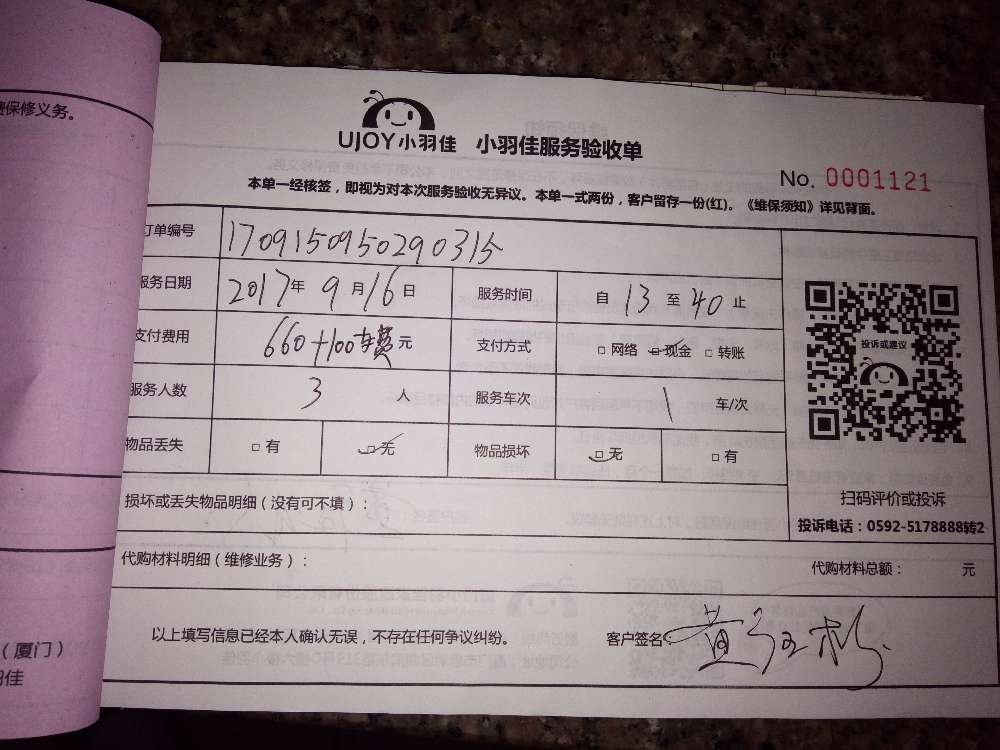 费保修义务。
UJOY小羽佳 小羽佳服务验收单
No. 0001121
本单一经核签，即视为对本次服务验收无异议。本单一式两份，客户留存一份(红)。《维保须知》详见背面。
订单编号 1709150950290315
服务日期 2017年9月16日 服务时间 自13至40止
支付费用 660+100车费元 支付方式 □网络 ☑现金 □转账
投诉或建议
服务人数 3人 服务车次 1车/次
物品丢失 □有 ☑无 物品损坏 ☑无 □有
扫码评价或投诉
损坏或丢失物品明细（没有可不填）：
投诉电话：0592-5178888转2
代购材料明细（维修业务）： 代购材料总额： 元
以上填写信息已经本人确认无误，不存在任何争议纠纷。 客户签名：
（厦门）
羽佳